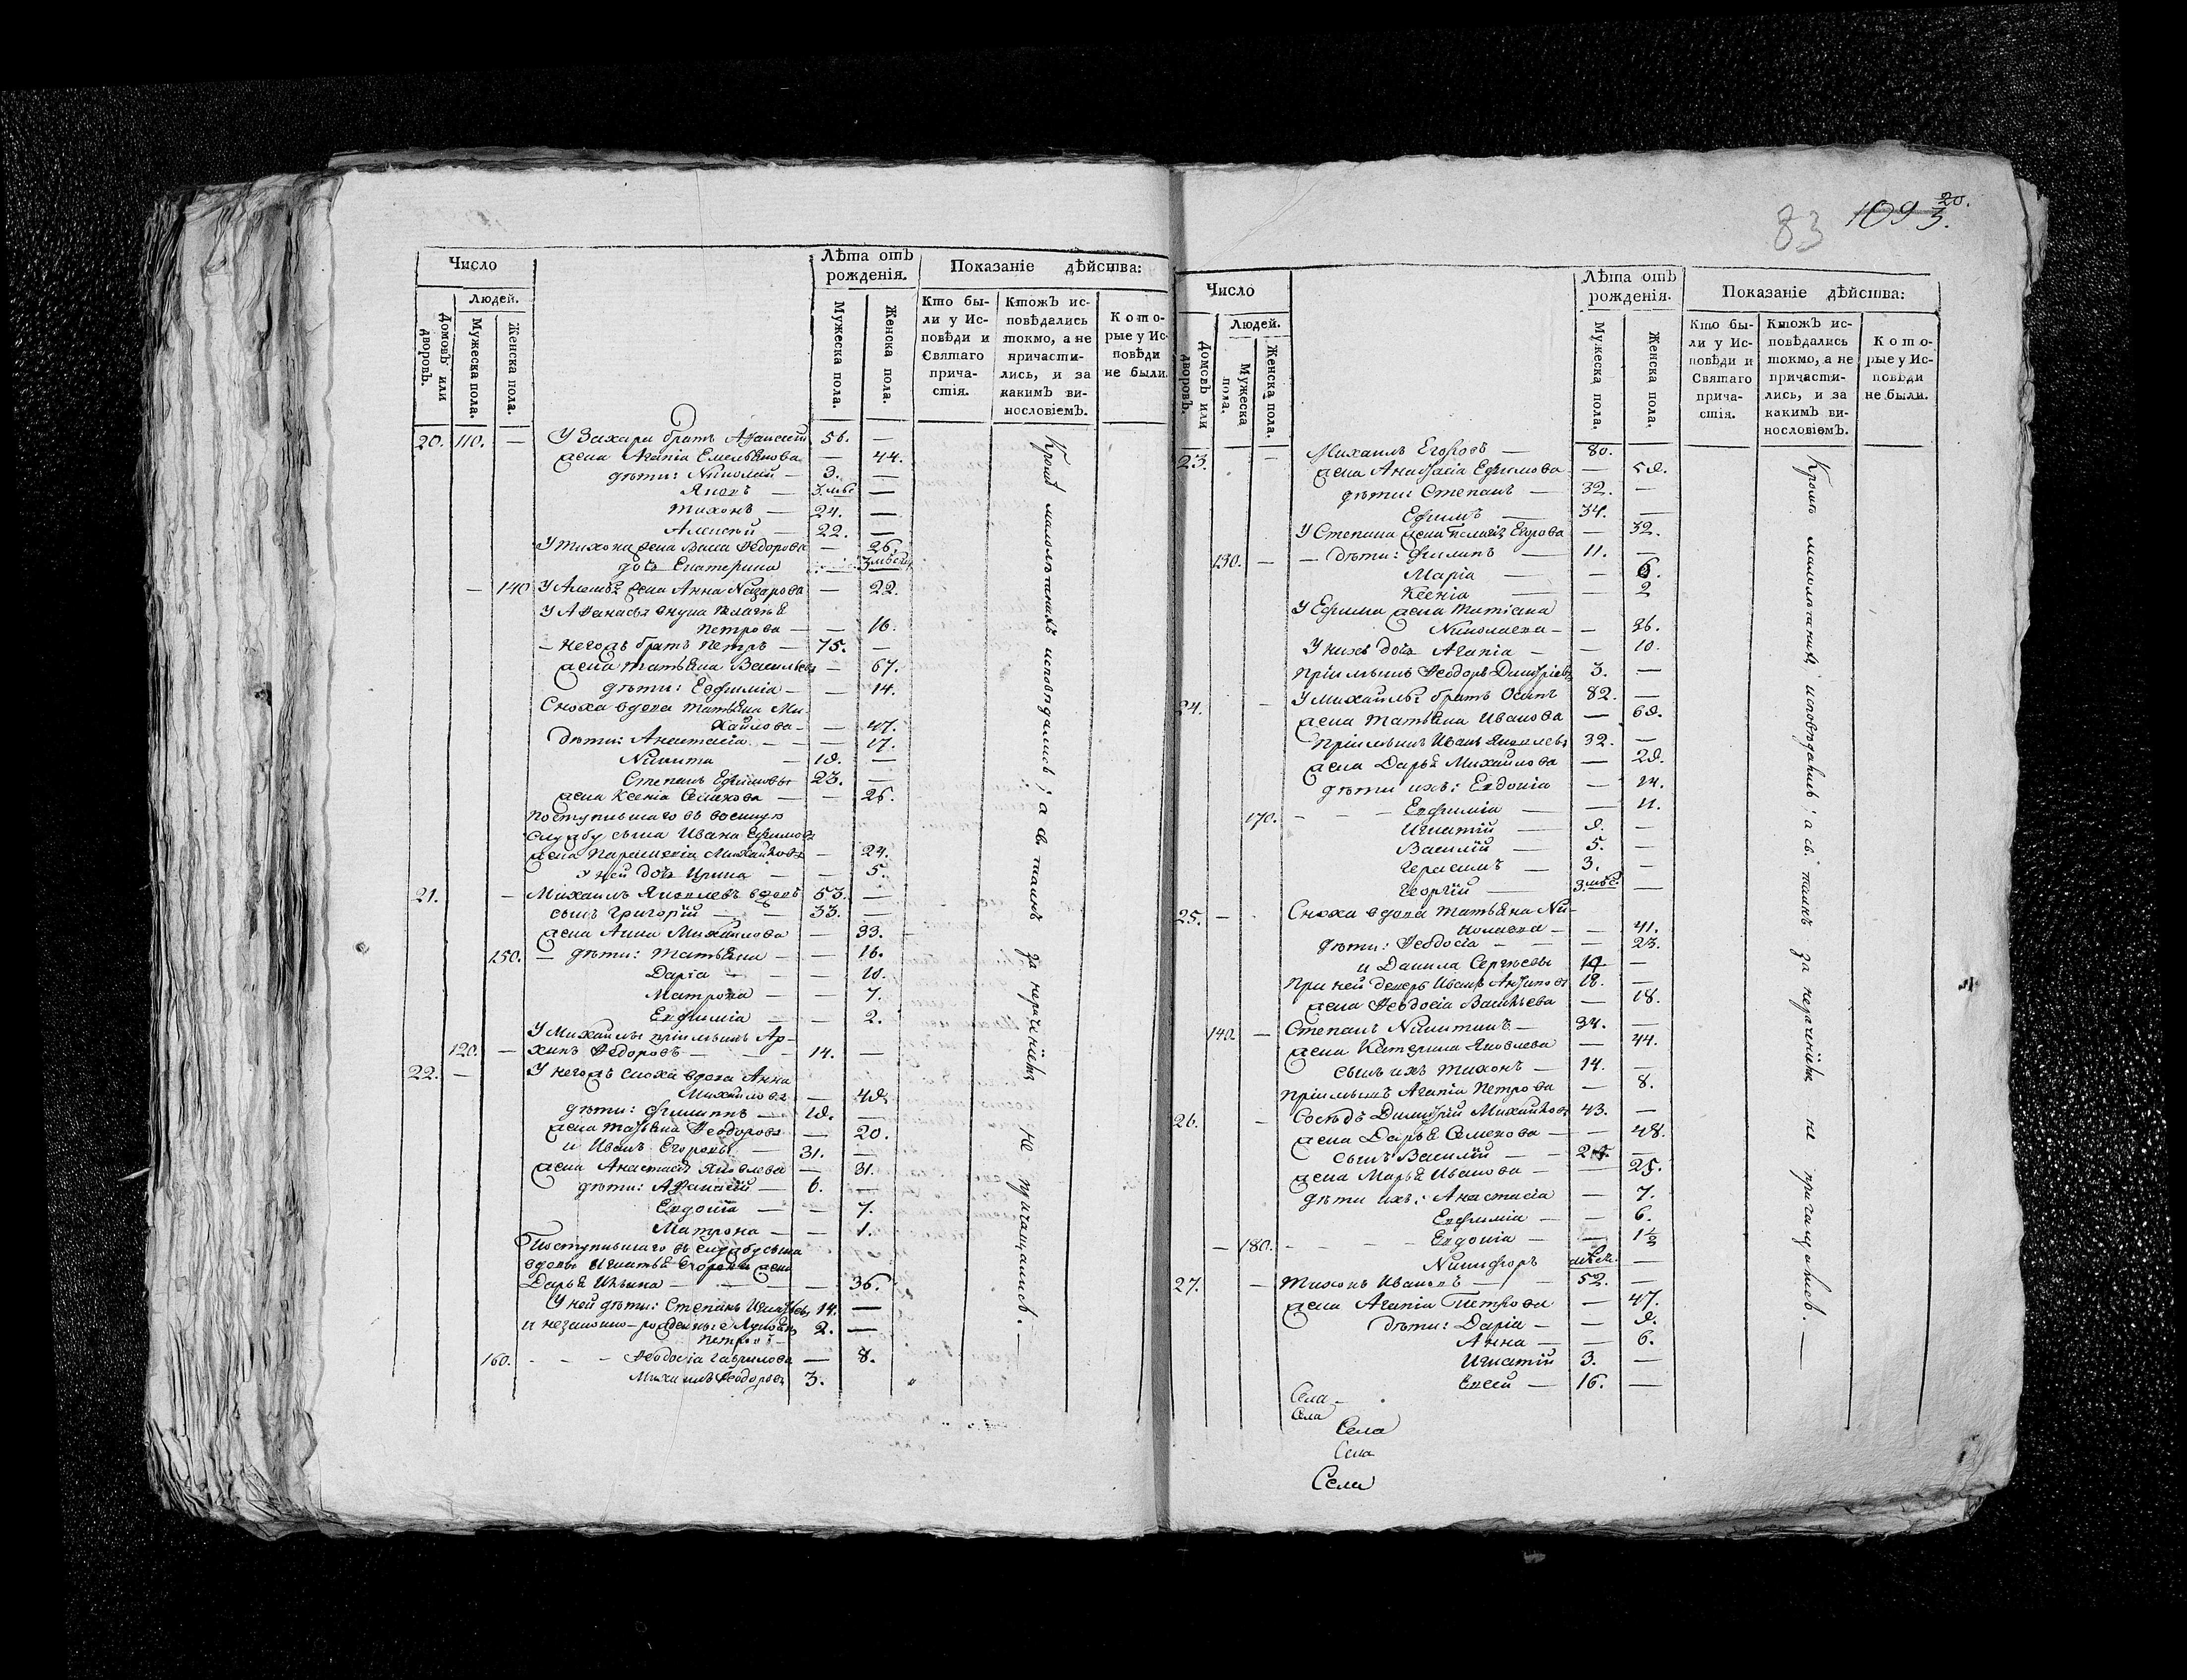 Число
Людей.
Домовъ или дворовъ.
Мужеска пола.
Женска пола.
Лѣта отъ рожденія.
Мужеска пола.
Женска пола.
Показаніе дѣйства:
Кто бы-
ли у Ис-
повѣди и
Святаго
прича-
стія.
Ктожъ ис-
повѣдались
токмо, а не
причасти-
лись, и за
какимъ ви-
нословіемъ.
Кото-
рые у Ис-
повѣди
не были.
20. 110. — У Захара братъ Афанасій 56. —
жена Агапіа Емельянова — 44.
дѣти: Николай — 3. —
Яковъ — 3. мѣс —
Тихонъ — 24. —
Алексѣй — 22. —
У Тихона жена Васса Ѳедорова — 26.
дочь Екатерина 3 мѣсяц
— 140 У Алексѣя жена Анна Назарова — 22.
У Афанасья внука Пелагѣя
Петрова — — 16.
— Негожъ братъ Петръ — 75. —
жена Татьяна Васильева — 67.
дѣти: Евфиміа — — 14.
Сноха вдова Татьяна Ми-
хайлова — — 47.
Дѣти: Анастасіа — — 17.
Никита — 18. —
Степанъ Ефимовы 23. —
жена Ксеніа Семенова — — 26.
Поступившаго въ военную
службу сына Ивана Ефимова
жена Параскевіа Михайлова — 24.
у ней дочь Ирина — — 5.
21. — Михаилъ Яковлевъ вдовъ 53. —
сынъ Григорій — — 33. —
жена Анна Михайлова — 33.
150. — дѣти: Татьяна — — 16.
Даріа — — 10.
Матрона — — 7.
Евфиміа — — 2.
У Михайлы пріимышъ Ар-
120. — хипъ Ѳедоровъ — — 14. —
22. — У негожъ сноха вдова Анна
Михайлова — 48.
дѣти: Филиппъ — 18. —
жена Татьяна Ѳеодорова — 20.
и Иванъ Егоровы — 31. —
жена Анастасіа Яковлева — 31.
дѣти: Афанасій — 6. —
Евдокіа — — 7.
Матрона — — 1.
Поступившаго въ службу сына
вдовы Игнатья Егорова жена
Дарья Ильина — — 36.
У ней дѣти: Степанъ Игнатьевъ 14. —
и незаконно-рожденные 2. —
160. — — — Ѳеодосіа Гаврилова — 8.
Михаилъ Ѳеодоровъ 3.
Кромѣ малолѣтнихъ исповѣдались; а св. таинъ за нераченіемъ не причащались. —
83 1093. 20.
Число
Людей.
Домовъ или дворовъ.
Мужеска пола.
Женска пола.
Лѣта отъ рожденія.
Мужеска пола.
Женска пола.
Показаніе дѣйства:
Кто бы-
ли у Ис-
повѣди и
Святаго
прича-
стія.
Ктожъ ис-
повѣдались
токмо, а не
причасти-
лись, и за
какимъ ви-
нословіемъ.
Кото-
рые у Ис-
повѣди
не были.
23. — Михаилъ Егоровъ — 80.
жена Анастасіа Ефимова — 58.
дѣти: Степанъ — 32. —
Ефимъ — 34. —
У Степана жена Пелагіа Егорова — 32.
130. — — Дѣти: Филипъ — 11. —
Маріа — — 6.
Ксеніа — — 2
У Ефима жена Татіана
Николаева — — 36.
У нихъ дочь Агапіа — — 10.
Пріимышъ Ѳеодоръ Димитріевъ 3. —
24. — У Михайлы братъ Осипъ 82. —
жена Татьяна Иванова — 68.
Пріимышъ Иванъ Яковлевъ 32. —
жена Дарья Михайлова — 28.
дѣти ихъ: Евдокіа — 14.
— — — Евфиміа — — 11.
170. Игнатій — 8. —
Василій — 5. —
Герасимъ — 3. —
Георгій — 3. мѣс. —
25. — Сноха вдова Татьяна Ни-
колаева — — 41.
дѣти: Ѳеодосіа — — — 23.
и Данила Сергѣевы 19 —
При ней деверь Иванъ Антиповъ 18. —
жена Ѳеодосіа Васильева — 18.
140. — Степанъ Никитинъ — 34. —
жена Катерина Яковлева — 44.
сынъ ихъ Тихонъ — 14. —
Пріимышъ Агапіа Петрова — 8.
26. — Сосѣдъ Димитрій Михайловъ 43. —
жена Дарья Семенова — — 48.
сынъ Василій — — —
жена Марья Иванова — 25.
дѣти ихъ: Анастасіа — 7.
Евфиміа — — 6.
— 180. — — — — Евдокіа — — 1½
Никифоръ мѣсяч. —
27. — Тихонъ Ивановъ — — 52. —
жена Агапіа Петрова — 47.
дѣти: Даріа — — 8.
Анна — — 6.
Игнатій 3. —
Евсей — 16. —
Села
Села
Села
Села
Села
Кромѣ малолѣтнихъ исповѣдались; а св. таинъ за нераченіемъ не причащались. —